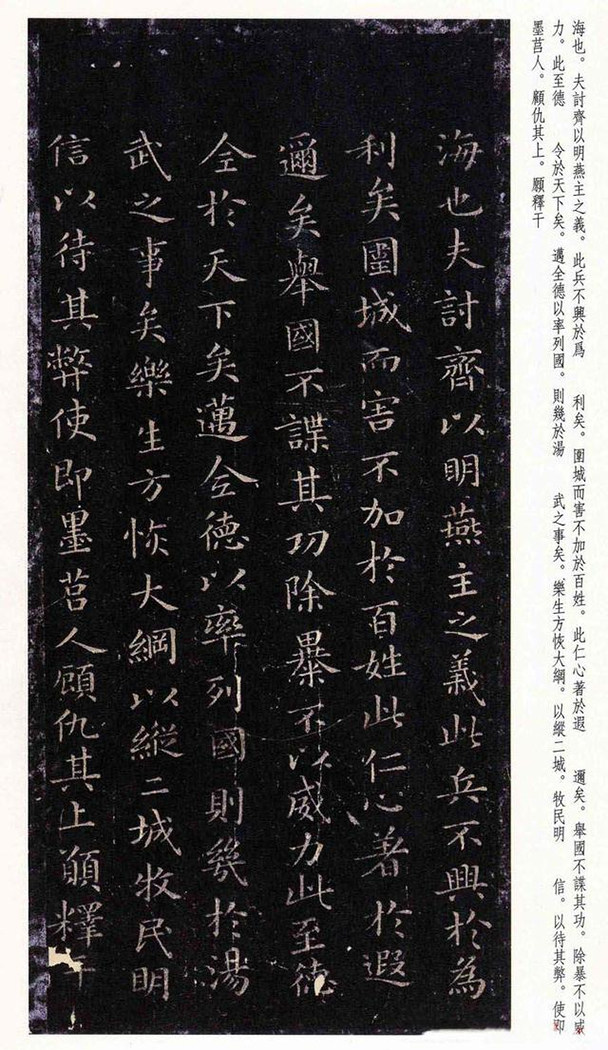 海也。夫討齊以明燕主之義。此兵不興於爲 利矣。圍城而害不加於百姓。此仁心著於遐 邇矣。舉國不謀其功。除暴不以威
力。此至德 令於天下矣。邁全德以率列國。則幾於湯 武之事矣。樂生方恢大綱。以縱二城。牧民明 信。以待其弊。使即
墨莒人。顧仇其上。願釋干
海也夫討齊以明燕主之義此兵不興於為
利矣圍城而害不加於百姓此仁心著於遐
邇矣舉國不謀其功除暴不以威力此至德
全於天下矣邁全德以率列國則幾於湯
武之事矣樂生方恢大綱以縱二城牧民明
信以待其弊使即墨莒人顧仇其上願釋干